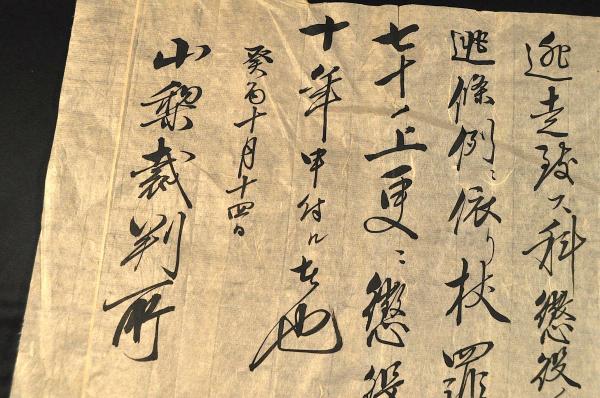 逃走致ス科懲役
逃條例ニ依リ杖罪
七十ノ上更ニ懲役
十年申付ル者也
癸酉十月十四日
山梨裁判所